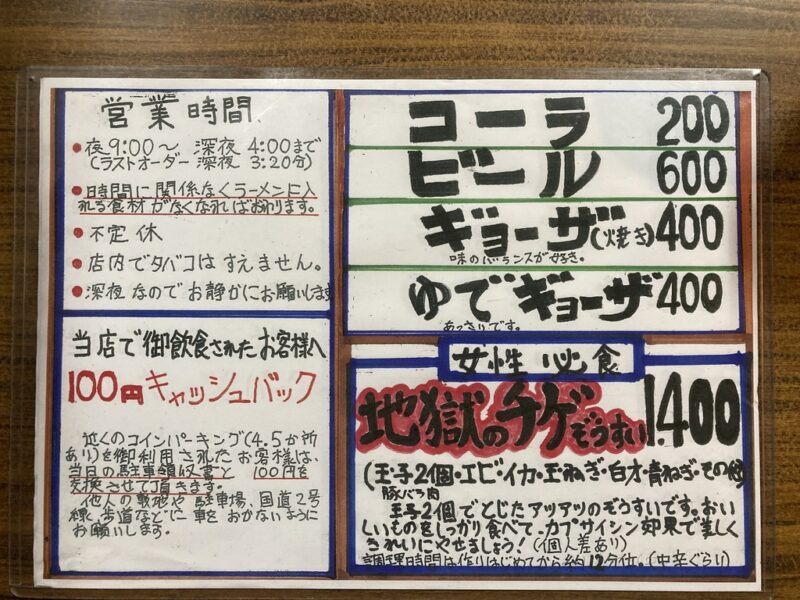 営業時間
●夜9:00〜 深夜 4:00まで
(ラストオーダー 深夜 3:20分)
●時間に関係なくラーメンに入
れる食材がなくなればおわります。
●不定休
●店内でタバコはすえません。
●深夜なのでお静かにお願いします
当店で御飲食されたお客様へ
100円キャッシュバック
近くのコインパーキング(4.5か所
あり)を御利用されたお客様は、
当日の駐車領収書と 100円を
交換させて頂きます。
他人の敷地や 駐車場、国道2号
線、歩道などに 車をおかないように
お願いします。
コーラ 200
ビール 600
ギョーザ(焼き) 400
味のバランスが好き。
ゆでギョーザ 400
あっさりです。
女性必食
地獄のチゲぞうすい 1.400
(玉子2個・エビ・イカ・玉ねぎ・白才・青ねぎ・その他)
豚バラ肉
玉子2個でとじたアツアツのぞうすいです。おい
しいものをしっかり食べて、カプサイシン効果で美しく
きれいにやせましょう！(個人差あり)
調理時間は作りはじめてから約12分位。(中辛ぐらい)